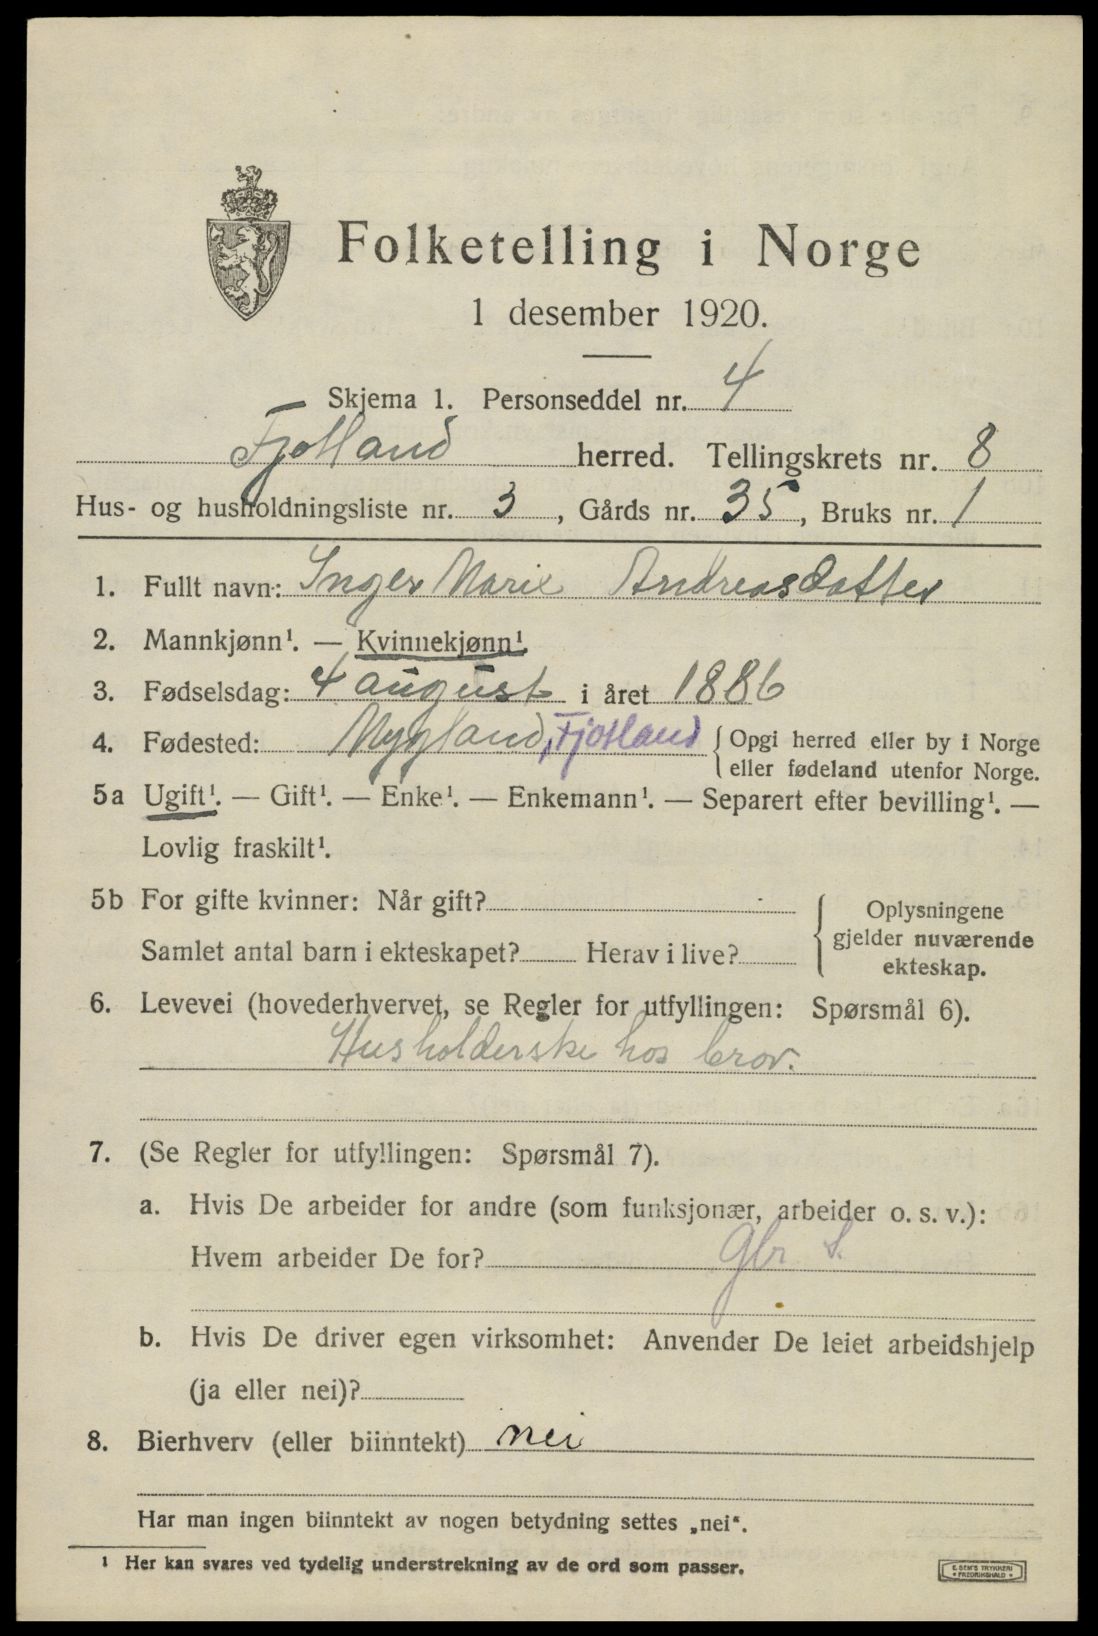 Folketelling i Norge
1 desember 1920.
Skjema 1. Personseddel nr. 4
Fjotland herred. Tellingskrets nr. 8
Hus- og husholdningsliste nr. 3, Gårds nr. 35, Bruks nr. 1
1. Fullt navn: Inger Marie Andreasdatter
2. Mannkjønn¹. — Kvinnekjønn¹.
3. Fødselsdag: 4 august i året 1886
4. Fødested: Nygland, Fjotland { Opgi herred eller by i Norge
eller fødeland utenfor Norge.
5a Ugift¹. — Gift¹. — Enke¹. — Enkemann¹. — Separert efter bevilling¹. —
Lovlig fraskilt¹.
5b For gifte kvinner: Når gift?
Samlet antal barn i ekteskapet? Herav i live?
Oplysningene
gjelder nuværende
ekteskap.
6. Levevei (hovederhvervet, se Regler for utfyllingen: Spørsmål 6).
Husholderske hos brov.
7. (Se Regler for utfyllingen: Spørsmål 7).
a. Hvis De arbeider for andre (som funksjonær, arbeider o. s. v.):
Hvem arbeider De for? Gbr S.
b. Hvis De driver egen virksomhet: Anvender De leiet arbeidshjelp
(ja eller nei)?
8. Bierhverv (eller biinntekt) nei
Har man ingen biinntekt av nogen betydning settes „nei“.
¹ Her kan svares ved tydelig understrekning av de ord som passer.
E. SEM'S TRYKKERI
• FREDRIKSHALD •